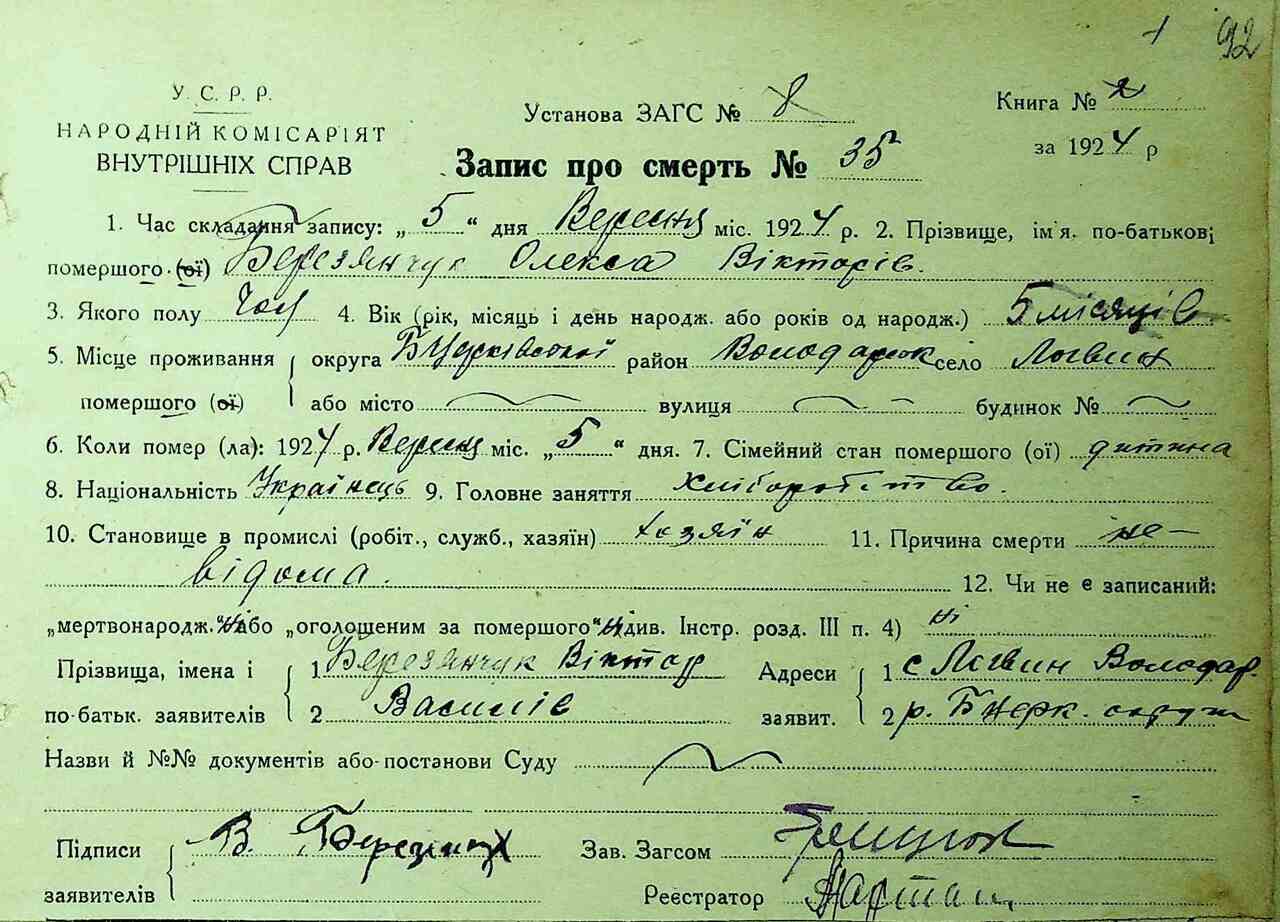 92
У. С. Р. Р.
НАРОДНІЙ КОМІСАРІЯТ
ВНУТРІШНІХ СПРАВ
Установа ЗАГС № 8
Книга № 2
за 1924 р
Запис про смерть № 35
1. Час складання запису: „ 5 “ дня Вересня міс. 1924 р. 2. Прізвище, ім'я. по-батькові
помершого (ої) Березянчук Олекса Вікторів.
3. Якого полу Чол 4. Вік (рік, місяць і день народж. або років од народж.) 5 місяців
5. Місце проживання округа Бцерківської район Володарськ село Логвин
помершого (ої) або місто вулиця будинок №
6. Коли помер (ла): 1924 р. Вересня міс. „ 5 “ дня. 7. Сімейний стан помершого (ої) дитина
8. Національність Українець 9. Головне заняття хліборобство.
10. Становище в промислі (робіт., служб., хазяїн) хозяїн 11. Причина смерти не-
відома. 12. Чи не є записаний:
„мертвонародж.“ або „оголошеним за помершого“ див. Інстр. розд. III п. 4) ні
Прізвища, імена і 1 Березянчук Віктор Адреси 1 с Логвин Володар.
по-батьк. заявителів 2 Василів заявит. 2 р. Бцерк. округи
Назви й №№ документів або постанови Суду
Підписи В. Березянчук Зав. Загсом
заявителів Реєстратор